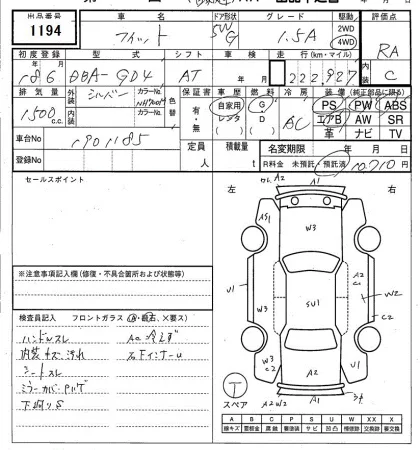 出品番号 車名 ドア形状 グレード 駆動 評価点
1194 フィット 5W G 1.5A 2WD 4WD RA
初度登録 型式 シフト 車検 走行(km・マイル) 内装
18年6月 DBA-GD4 AT 年 月 222,927 C
排気量 外装 カラーNo. 色替 保証書 車歴 燃料 冷房 装備(純正部品に限る)
1500 c.c. シルバー NH700M 有・無 自家用 レンタ G D AC PS PW ABS
内装 カラーNo. エアB AW SR
革 ナビ TV
車台No 1901185 定員 人 積載量 t 名変期限 年 月 日
登録No R料金 未預託・預託済 10710円
セールスポイント 左 右
A2 A1
AS1 W3
A2 C1
U1 SU1 W2
C2
W3 C2 A2 U1
スペア A2 W2 A1
※注意事項記入欄(修復・不具合箇所および状態等)
検査員記入 フロントガラス(A・飛石、×要ス)
ハンドルスレ AC冷えず
内装キズ汚れ 右FインナーU
シートスレ
ミラーカバーPハゲ
下廻りS
A B C P S U W X XX
線キズ 要鈑金 腐蝕 要塗装 サビ 凹凸 補修跡 要交換 交換済